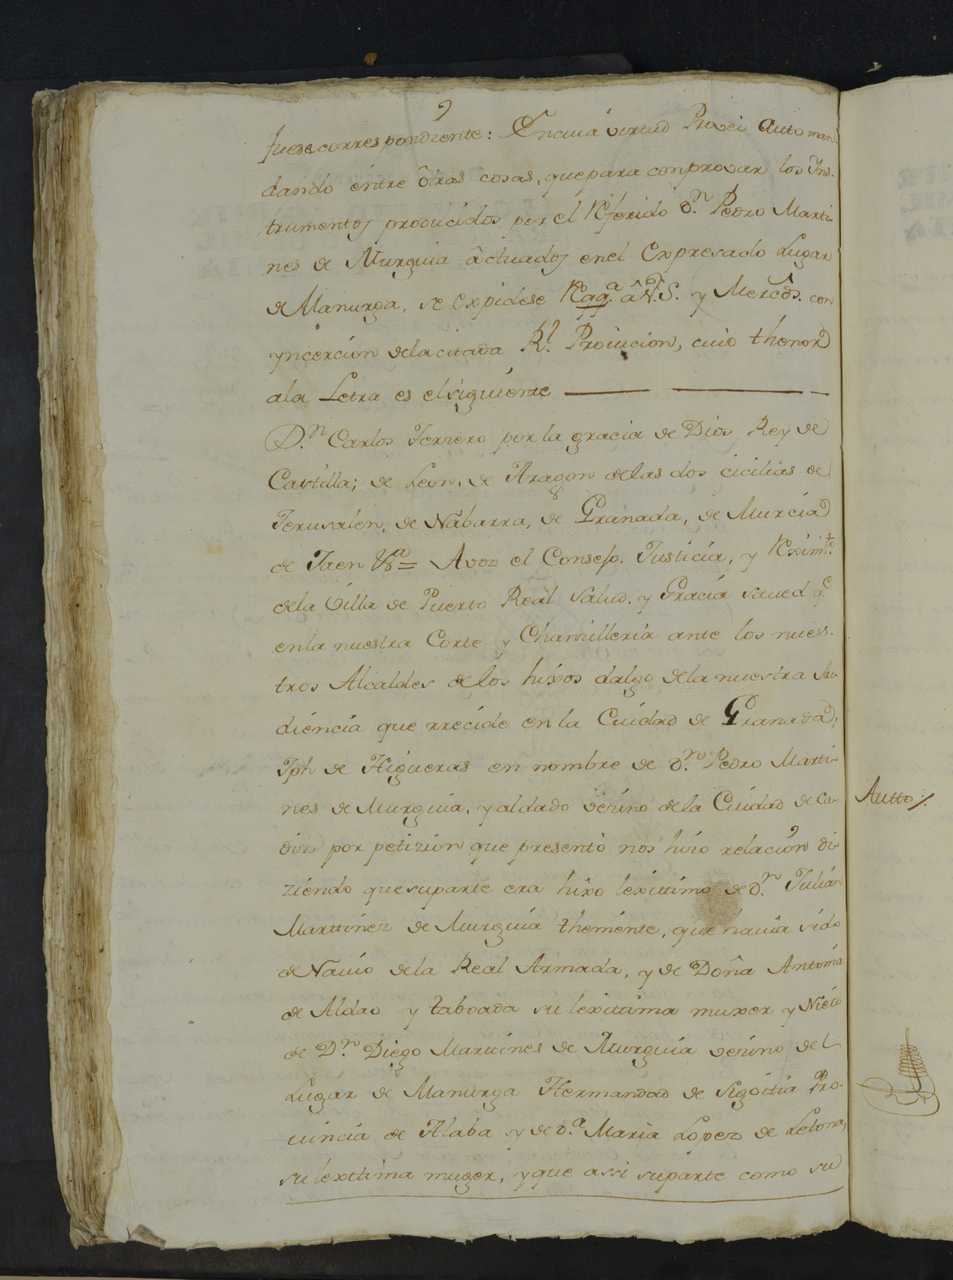 fuese correspondiente: En cuia virtud Provei Auto man-
dando entre ôtras cosas, que para conprovar los Ins-
trumentos producidos por el Referido Dn. Pedro Marti-
nes de Murguia âctuados en el Expresado Lugar
de Manurga, se expidese Raqa. â V.S. y Mercds. con
yncercion de la citada Rl. Provicion, cuio thenor
a la Letra es el siguiente
Dn. Carlos Terzero por la gracia de Dios Rey de
Castilla; de Leon, de Aragon de las dos cicilias de
Jerusalen, de Nabarra, de Granada, de Murcia
de Jaen &a = A vos el Consejo, Justicia, y Reximto.
de la Villa de Puerto Real salud, y Gracia saved qe.
en la nuestra Corte y Chansilleria ante los nues-
tros Alcaldes de los hixos dalgo de la nuestra Au-
diencia que rrecide en la Ciudad de Granada;
Jph de Higueras en nombre de Dn. Pedro Marti-
nes de Murguia, y aldado vecino de la Ciudad de Ca-
diz por petizion que presentò nos hizo relacion di-
ziendo que su parte era hixo lexittimo de Dn. Julian
Martinez de Murguia theniente, que havia sido
de Navio de la Real Armada, y de Doña Antonia
de Aldao y taboada su lexittima muxer y Nieto
de Dn. Diego Martines de Murguia vecino del
Lugar de Manurga Hermandad de Sigoitia Pro-
vincia de Alaba y de Da. Maria Lopez de Letona,
su lexttima muger, y que assi su parte como su
Autto/.